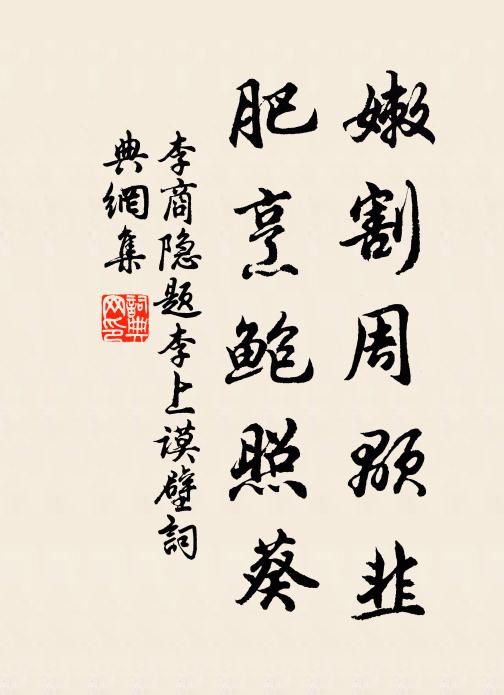 嫩割周颙韭
肥烹鲍照葵
李商隐题李上谟壁词
典網集
詞典網印